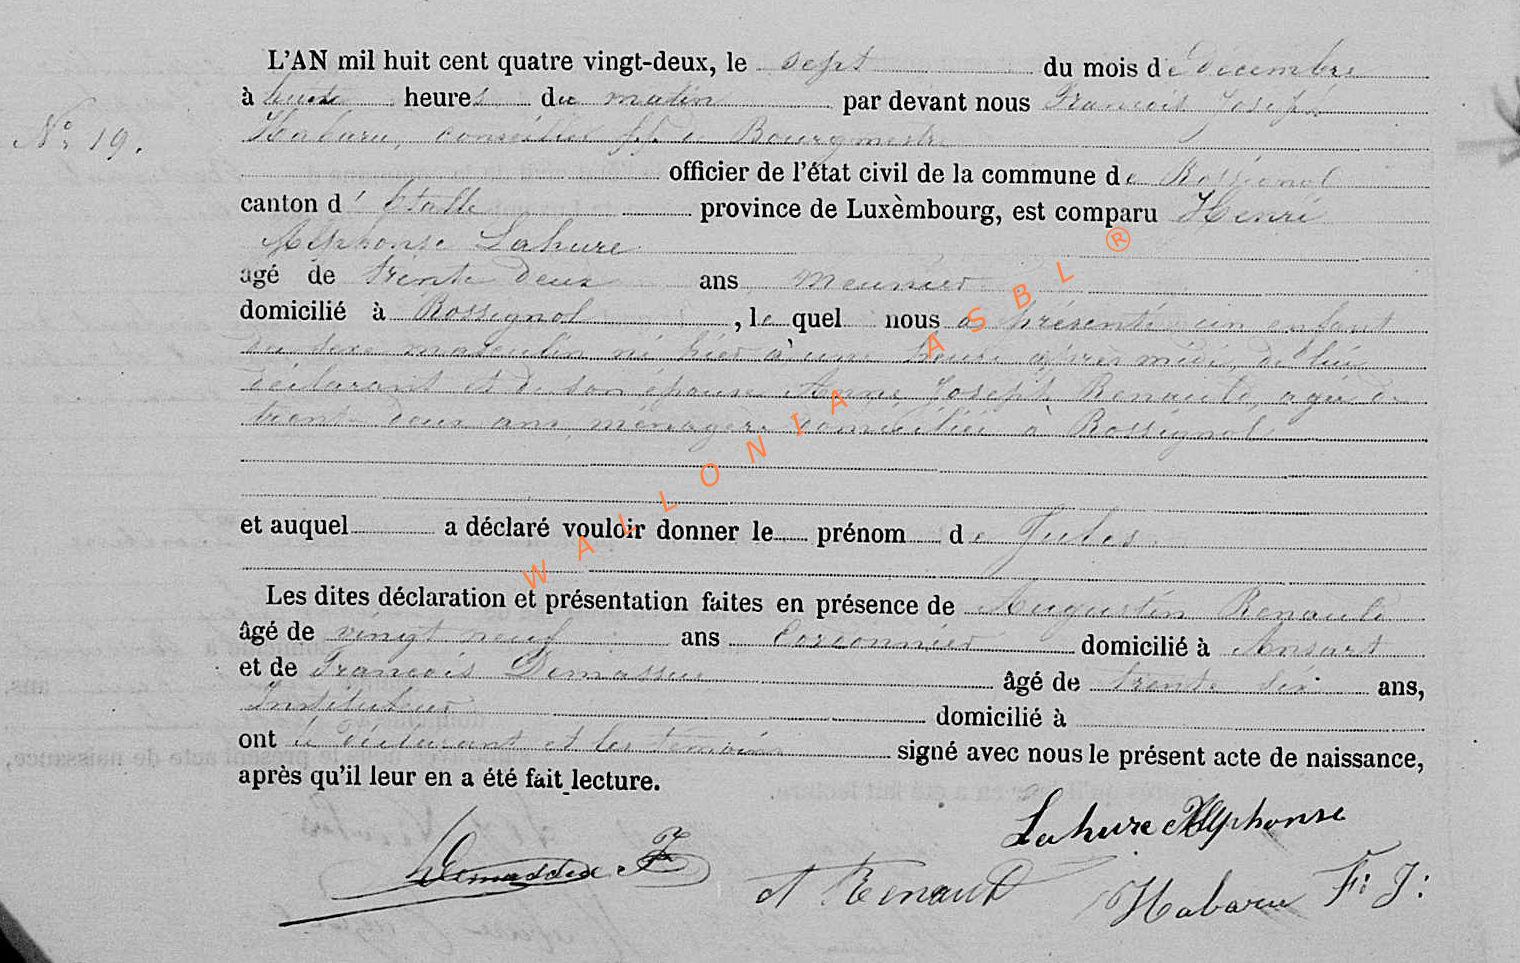 L'AN mil huit cent quatre vingt-deux, le sept du mois de décembre
à huit heures du matin par devant nous François Joseph
N° 19.
Habaru, conseiller ff. de Bourgmestre
officier de l'état civil de la commune de Rossignol
canton d'Etalle province de Luxèmbourg, est comparu Henri
Alphonse Lahure
agé de trente deux ans meunier
domicilié à Rossignol, le quel nous a présenté un enfant
du sexe masculin né hier à une heure après midi, de lui
déclarant et de son épouse Anne Joseph Renauld, agée de
trente deux ans, ménagère domiciliée à Rossignol
et auquel a déclaré vouloir donner le prénom de Jules
Les dites déclaration et présentation faites en présence de Augustin Renauld
âgé de vingt neuf ans Cordonnier domicilié à Ansart
et de François Demasse âgé de trente six ans,
Instituteur domicilié à
ont le déclarant et les témoins signé avec nous le présent acte de naissance,
après qu'il leur en a été fait lecture.
Lahure Alphonse
F.
A Renauld
Habaru F: J:
WALLONIA ASBL ®